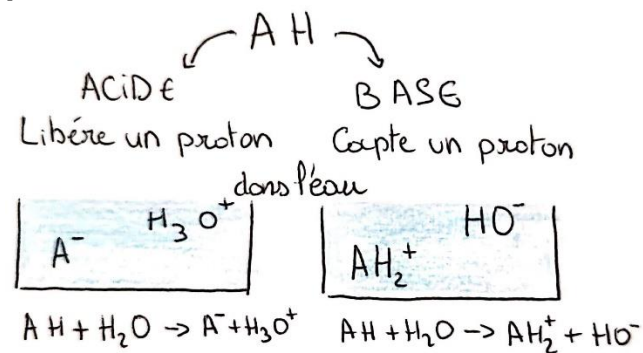 AH
ACiDE
BASE
Libére un proton
Capte un proton
dans l'eau
A⁻
H₃O⁺
AH₂⁺
HO⁻
AH + H₂O → A⁻ + H₃O⁺
AH + H₂O → AH₂⁺ + HO⁻